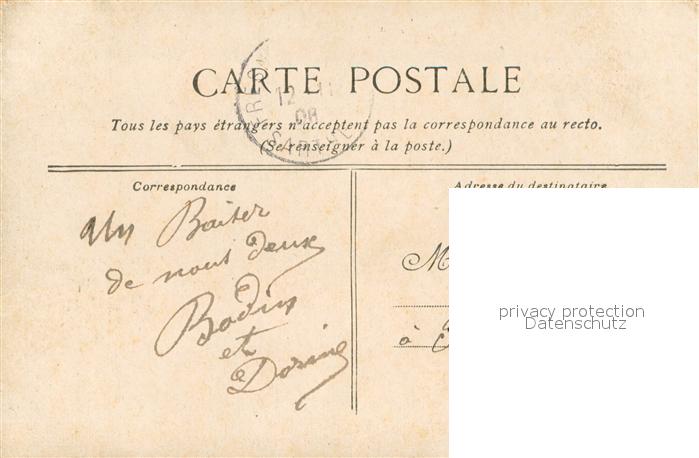 CARTE POSTALE
12
08
SARTHE
Tous les pays étrangers n'acceptent pas la correspondance au recto.
(Se renseigner à la poste.)
Correspondance
Adresse du destinataire
Un Baiser
de nous deux
Bodin
et
Dorine
M
à
privacy protection
Datenschutz